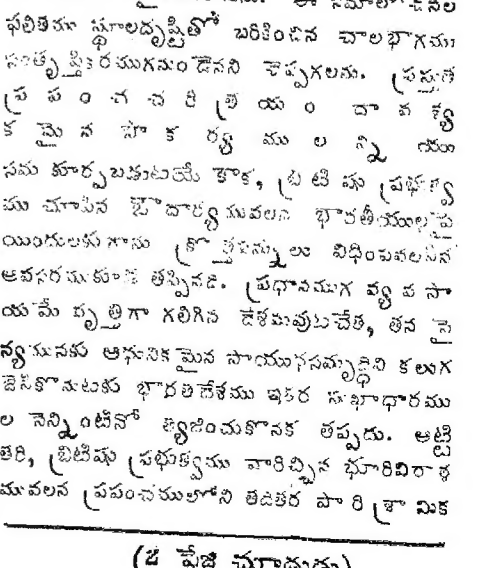 ఫలితము స్థూలదృష్టితో పరికించిన చాలభాగము
సంతృప్తికరముగనుండెనని చెప్పగలను. ప్రస్తుత
ప్రపంచచరిత్రయందావశ్య
కమైనసౌకర్యములన్నియు
సమకూర్పబడుటయే కాక, బ్రిటిషు ప్రభుత్వ
ము చూపిన ఔదార్యమువలన భారతీయులపై
యిందులకుగాను క్రొత్తపన్నులు విధింపవలసిన
అవసరముకూడ తప్పినది. ప్రధానముగ వ్యవసా
యమే వృత్తిగా గలిగిన దేశమవుటచేత, తన సై
న్యమునకు ఆధునికమైన సాయుధసమృద్ధిని కలుగ
జేసికొనుటకు భారతదేశము ఇతర సుఖాధారము
ల నెన్నింటినో త్యజించుకొనక తప్పదు. అట్టి
తరి, బ్రిటిషు ప్రభుత్వము వారిచ్చిన భూరివిరాళ
మువలన ప్రపంచములోని తదితర పారిశ్రామిక
(2 పేజి చూడుడు)